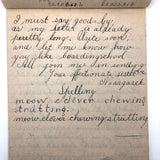 I must say good-by,
as my letter is already
pretty long. Write soon
and let me know how
you like boardingschool
Your affectionate
Margaret.
Spelling
meow clever chewing
strutting.
meow clever chewing strutting